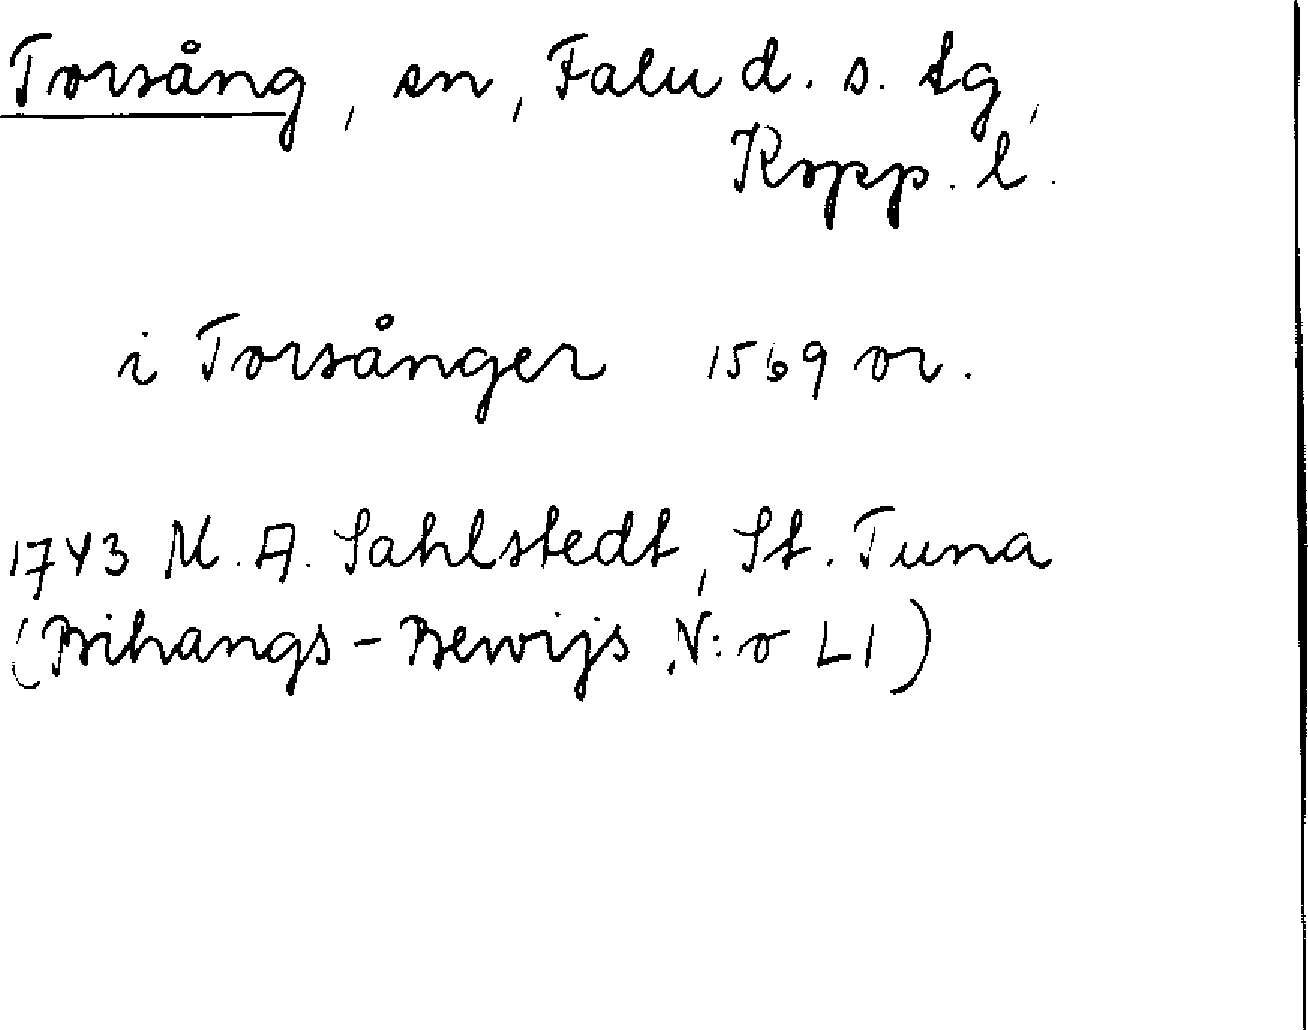 Torsång, sn, Falu d. s. tg,
Kopp. l.
i Torsånger 1569 or.
1743 M. A. Sahlstedt, St. Tuna
(Bihangs-Bewijs N:o LI)